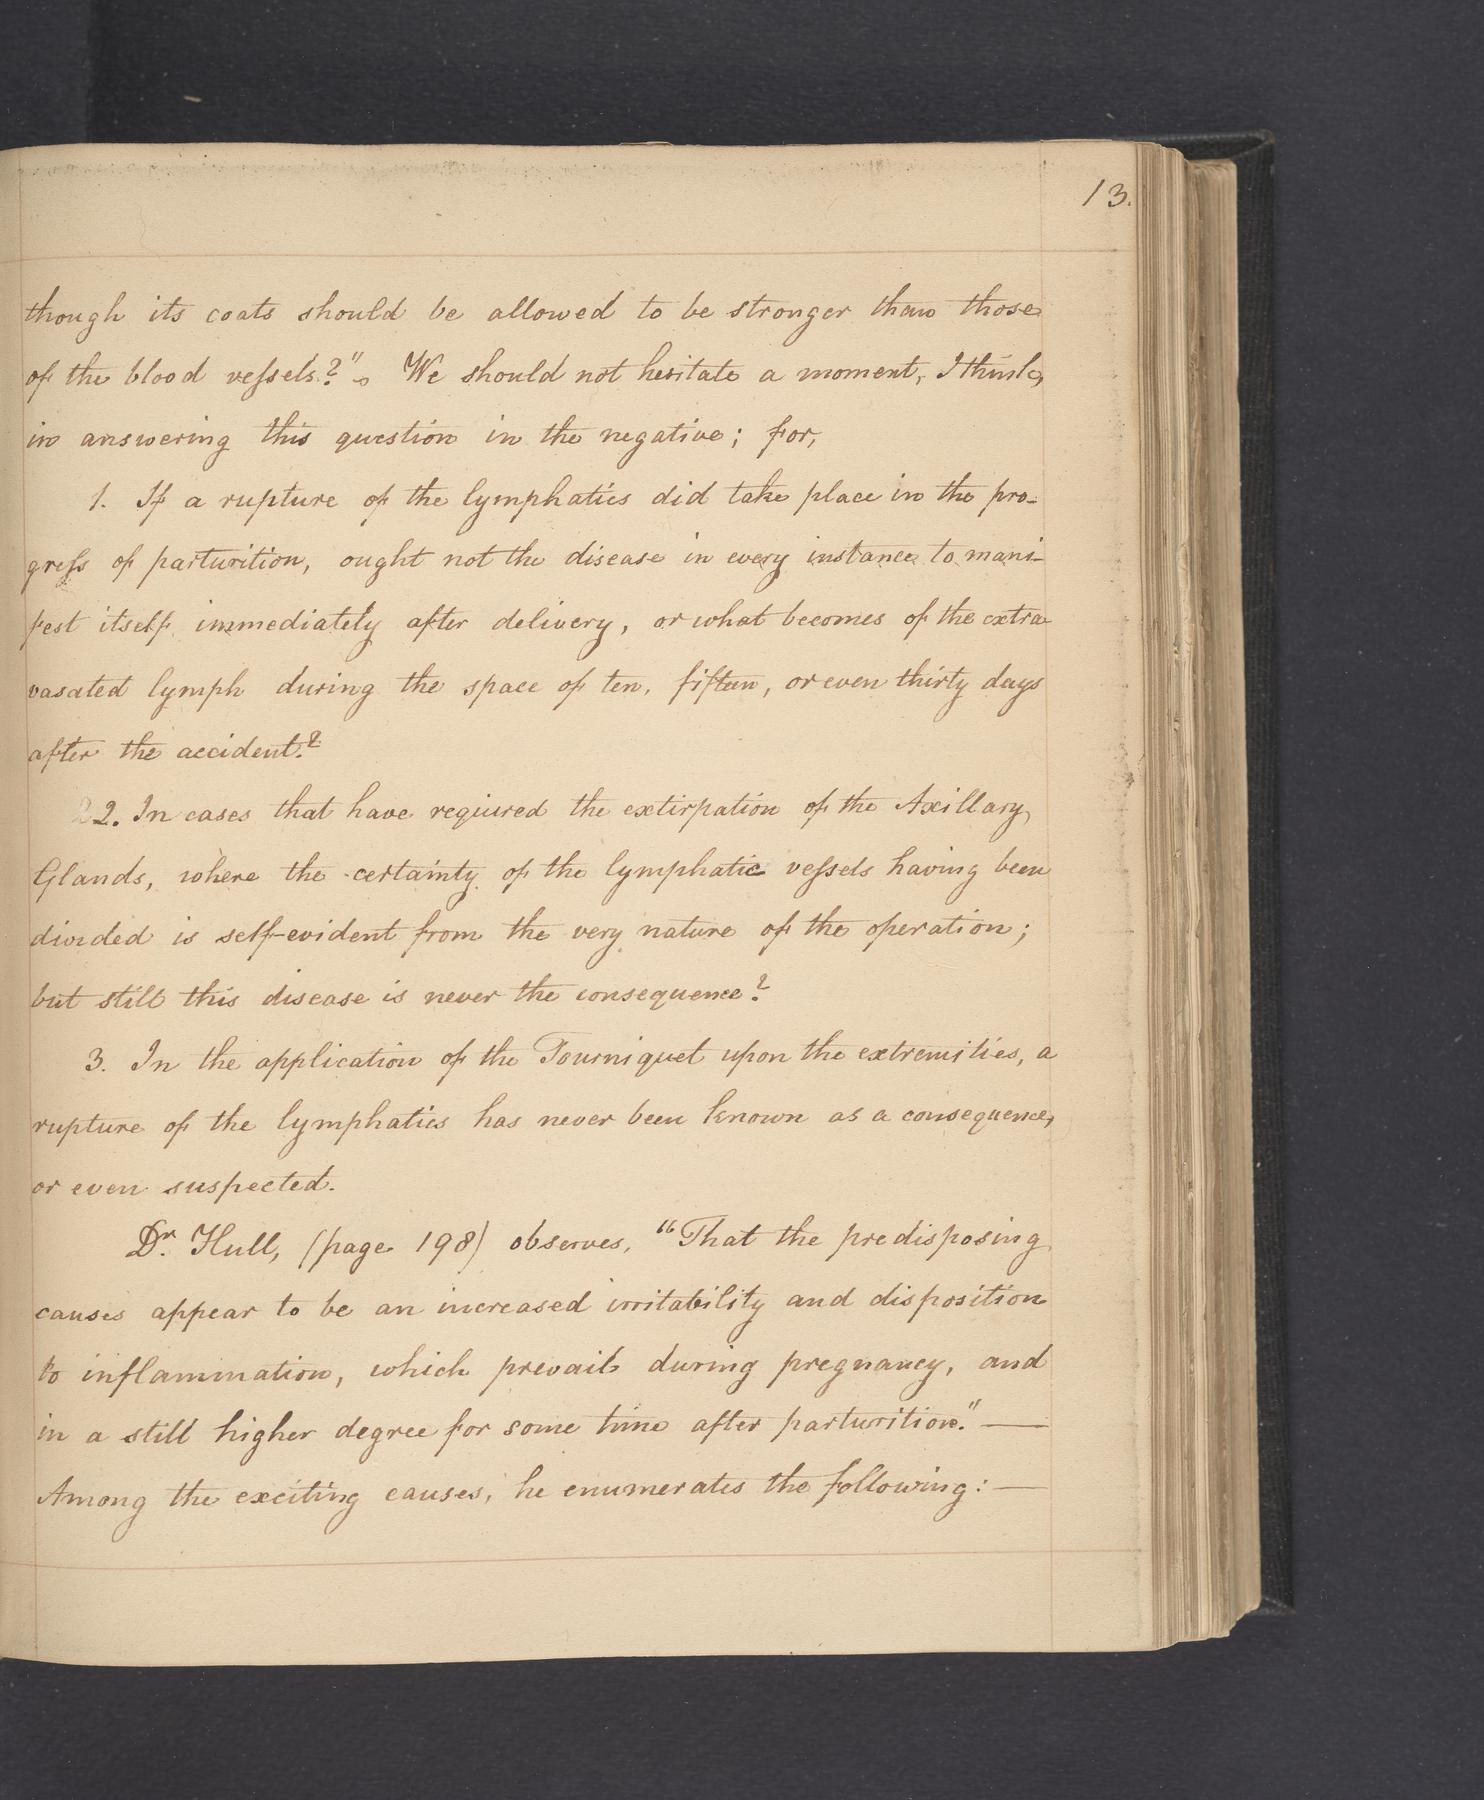 13.
though its coats should be allowed to be stronger than those
of the blood veſsels?" We should not hesitate a moment, I think,
in answering this question in the negative; for,
1. If a rupture of the lymphatics did take place in the pro-
greſs of parturition, ought not the disease in every instance to mani-
fest itself immediately after delivery, or what becomes of the extra-
vasated lymph during the space of ten, fifteen, or even thirty days
after the accident?
2. In cases that have required the extirpation of the Axillary
Glands, where the certainty of the lymphatic veſsels having been
divided is self-evident from the very nature of the operation;
but still this disease is never the consequence?
3. In the application of the Tourniquet upon the extremities, a
rupture of the lymphatics has never been known as a consequence,
or even suspected.
Dr. Hull, (page 198) observes, "That the predisposing
causes appear to be an increased irritability and disposition
to inflammation, which prevails during pregnancy, and
in a still higher degree for some time after parturition." —
Among the exciting causes, he enumerates the following: —